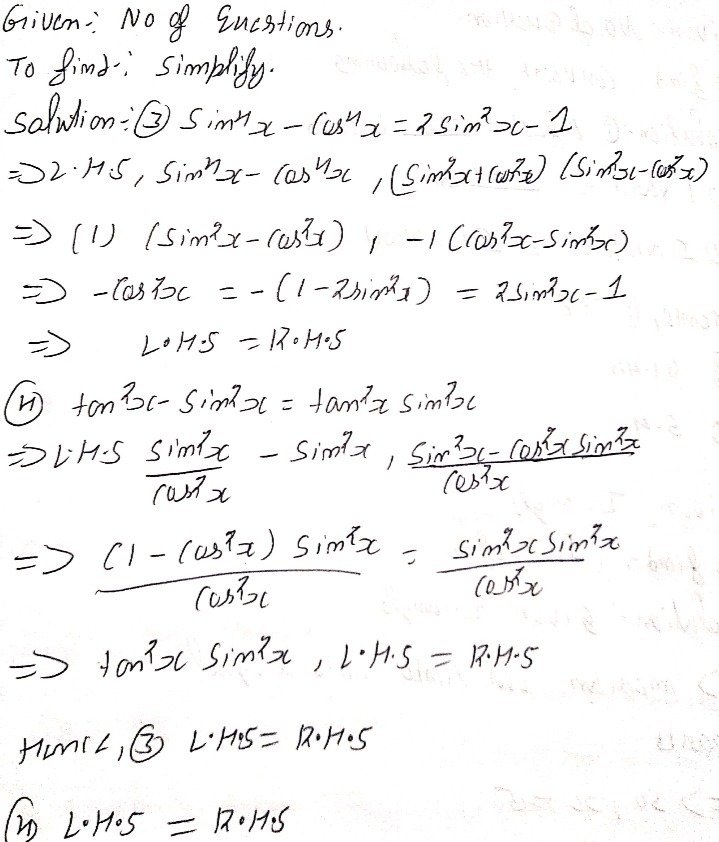 Given:- No of Questions.
To find:- Simplify.
Solution:- ③ Sin⁴x - Cos⁴x = 2Sin²x - 1
=> L.H.S, Sin⁴x - Cos⁴x, (Sin²x + Cos²x) (Sin²x - Cos²x)
=> (1) (Sin²x - Cos²x), -1 (Cos²x - Sin²x)
=> - Cos2x = - (1 - 2Sin²x) = 2Sin²x - 1
=> L.H.S = R.H.S
④ tan²x - Sin²x = tan²x Sin²x
=> L.H.S Sin²x/Cos²x - Sin²x, Sin²x - Cos²x Sin²x/Cos²x
=> (1 - Cos²x) Sin²x/Cos²x = Sin²x Sin²x/Cos²x
=> tan²x Sin²x, L.H.S = R.H.S
Hence, ③ L.H.S = R.H.S
④ L.H.S = R.H.S